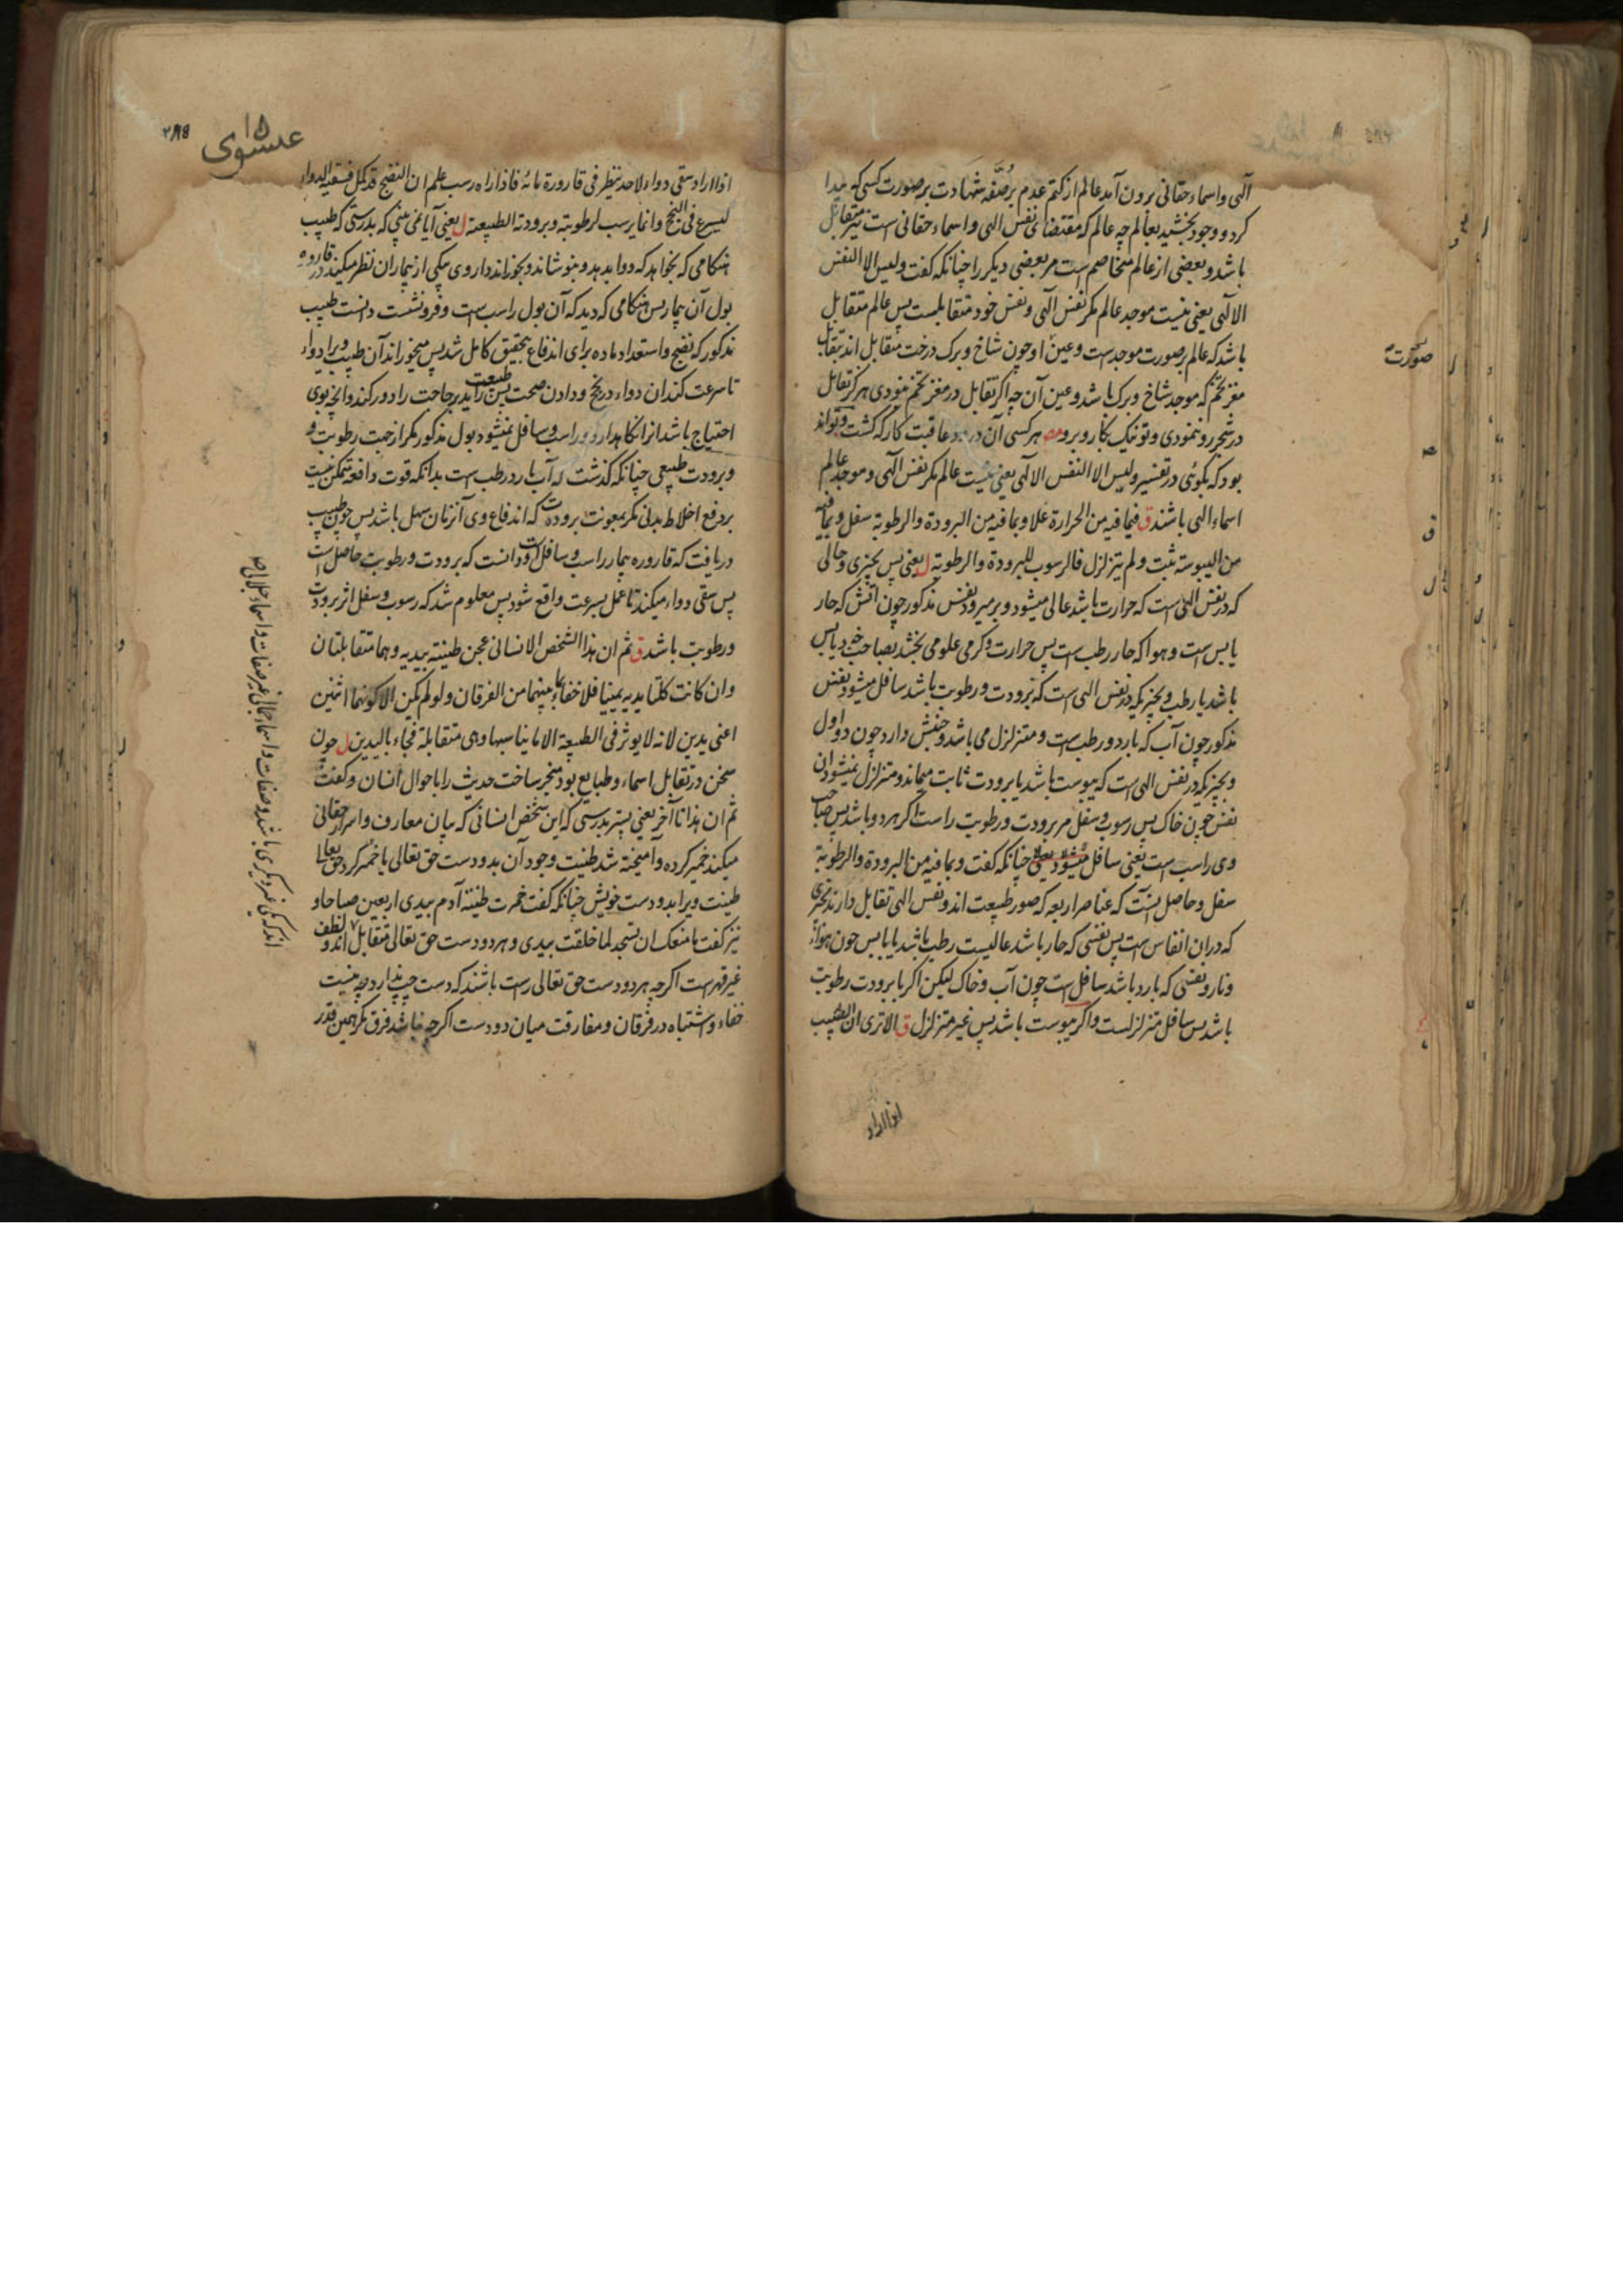 الهی و اسماء حقانی برون آمد عالم از کتم عدم بر صُفّه شهادت بر صورت کسی که پیدا
کرد و وجود بخشید بعالم چه عالم که مقتضای نفس الهی و اسماء حقانی است نیز متقابل
باشد و بعضی از عالم متخاصم است مر بعضی دیگر را چنانکه گفت و لیس الا النفس
الالهی یعنی نیست موجد عالم مگر نفس الهی و نفس خود متقابلست پس عالم متقابل
باشد که عالم بر صورت موجد است و عین او چون شاخ و برک درخت متقابل اند بتقابل
مغز تخم که موجد شاخ و برک باشد و عین آن چه اگر تقابل در مغز تخم نبودی هرگز تقابل
در شجر رو ننمودی و تو نیک بکار و برو مصر هر کسی آن درود عاقبت کار که کشت و تواند
بود که بگوئی در تفسیر و لیس الا النفس الالهی یعنی نیست عالم مگر نفس الهی و موجد عالم
اسماء الهی باشند ق فبما فیه من الحرارة علا و بما فیه من البرودة والرطوبة سفل و بما فیه
من الیبوسة ثبت و لم یتزلزل فالرسوب للبرودة والرطوبة ل یعنی پس بچیزی و حالی
که در نفس الهی است که حرارت باشد عالی میشود و بر میرود نفس مذکور چون آتش که حار
یابس است و هوا که حار رطب است پس حرارت و گرمی علومی بخشد بصاحب خود یابس
باشد یا رطب و بچیزیکه در نفس الهی است که برودت و رطوبت باشد سافل میشود نفس
مذکور چون آب که بارد و رطب است و متزلزل می باشد و جنبش دارد چون دو اول
و بچیزیکه در نفس الهی است که یبوست باشد یا برودت ثابت میماند و متزلزل نمیشود ان
نفس چون خاک پس رسوب و سفل مر برودت و رطوبت راست اگر هر دو باشد پس صاحب
وی راسب است یعنی سافل میشود چنانکه گفت و بما فیه من البرودة والرطوبة
سفل و حاصل اینست که عناصر اربعه که صور طبیعت اند و نفس الهی تقابل دارند
که در ان انفاس است پس نفسی که حار باشد عالیست رطب باشد یا یابس چون هواء
و نار و نفسی که بارد باشد سافل است چون آب و خاک لیکن اگر با برودت رطوبت
باشد پس سافل متزلزلست و اگر یبوست باشد پس غیر متزلزل ق الا تری ان الطبیب
اذا اراد
صورت
عیسوی
۱۵
اذا اراد سقی دواء لاحد ینظر فی قارورة مائه فاذا راه رسب علم ان النضج قد کمل فسقیه الدواء
لیسرع فی النجح و انما یرسب لرطوبته و برودته الطبیعیة ل یعنی آیا نمی بینی که بدرستی که طبیب
هنگامی که بخواهد که دوا بدهد و بنوشاند و بخوراند داروی بیکی از بیماران نظر میکند در قاروره
بول آن بیمار پس هنگامی که دید که آن بول راسب است و فرو نشست دانست طبیب
مذکور که نضج و استعداد ماده برای اندفاع بتحقیق کامل شد پس میخوراند آن طبیب ویرا دواء
تا سرعت کند ان دواء در نجح و دادن صحت پس طبیعت راید بر جاحت را دور کند و انچه بوی
احتیاج باشد انرا نگاهدارد و راسب و سافل نمیشود بول مذکور مگر از جهت رطوبت و
و برودت طبیعی چنانکه گذشت که آب بارد رطب است بدانکه قوت دافعه متمکن نیست
بر دفع اخلاط بدنی مگر بمعونت برودت که اندفاع وی آنزمان سهل باشد پس چون طبیب
دریافت که قاروره بیمار راسب و سافل است و دانست که برودت و رطوبت حاصل است
پس سقی دواء میکند تا عمل بسرعت واقع شود پس معلوم شد که رسوب و سفل اثر برودت
و رطوبت باشد ق ثم ان هذا الشخص الانسانی عجن طینته بیدیه و هما متقابلتان
و ان کانت کلتا یدیه یمینا فلا خفاء بما بینهما من الفرقان و لو لم یکن الا کونهما اثنین
اعنی یدین لانه لا یوثر فی الطبیعة الا ما یناسبها و هی متقابلة فجاء بالیدین ل چون
سخن در تقابل اسماء و طبایع بود منجر ساخت حدیث را با حوال انسان و گفت
ثم ان هذا تا آخر یعنی پستر بدرستی که این شخص انسانی که بیان معارف و اسرار حقانی
میکند خمیر کرده و آمیخته شد طینت وجود آن بدو دست حق تعالی یا خمیر کرد حق تعالی
طینت ویرا بدو دست خویش چنانکه گفت خمرت طینة آدم بیدی اربعین صباحا و
نیز گفت ما منعک ان تسجد لما خلقت بیدی و هر دو دست حق تعالی متقابل اند و لطف
غیر قهر است اگرچه هر دو دست حق تعالی راست باشند که دست چپ ندارد چه نیست
خفاء و اشتباه در فرقان و مفارقت میان دو دست اگرچه نباشد فرق مگر همین قدر
اند که یکی غیر دیگری باشد و صفات و اسماء جمالی غیر صفات و اسماء جلالی